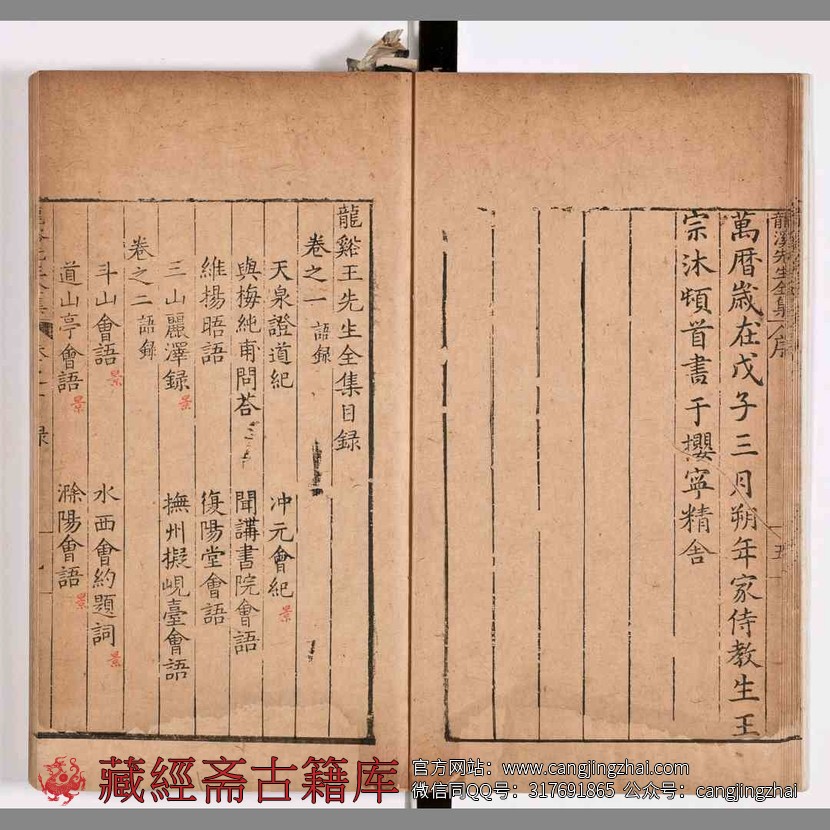 龍溪先生全集 序
五
萬曆歲在戊子三月朔年家侍教生王
宗沐頓首書于攖寧精舍
龍谿王先生全集目録
卷之一 語録
天泉證道紀 冲元會紀 景
與梅純甫問荅 聞講書院會語
維揚晤語 復陽堂會語
三山麗澤録 景 撫州擬峴臺會語
卷之二 語録
斗山會語 景 水西會約題詞 景
道山亭會語 景 滁陽會語 景
藏經斋古籍库
官方网站：www.cangjingzhai.com
微信同QQ号：317691865 公众号：cangjingzhai